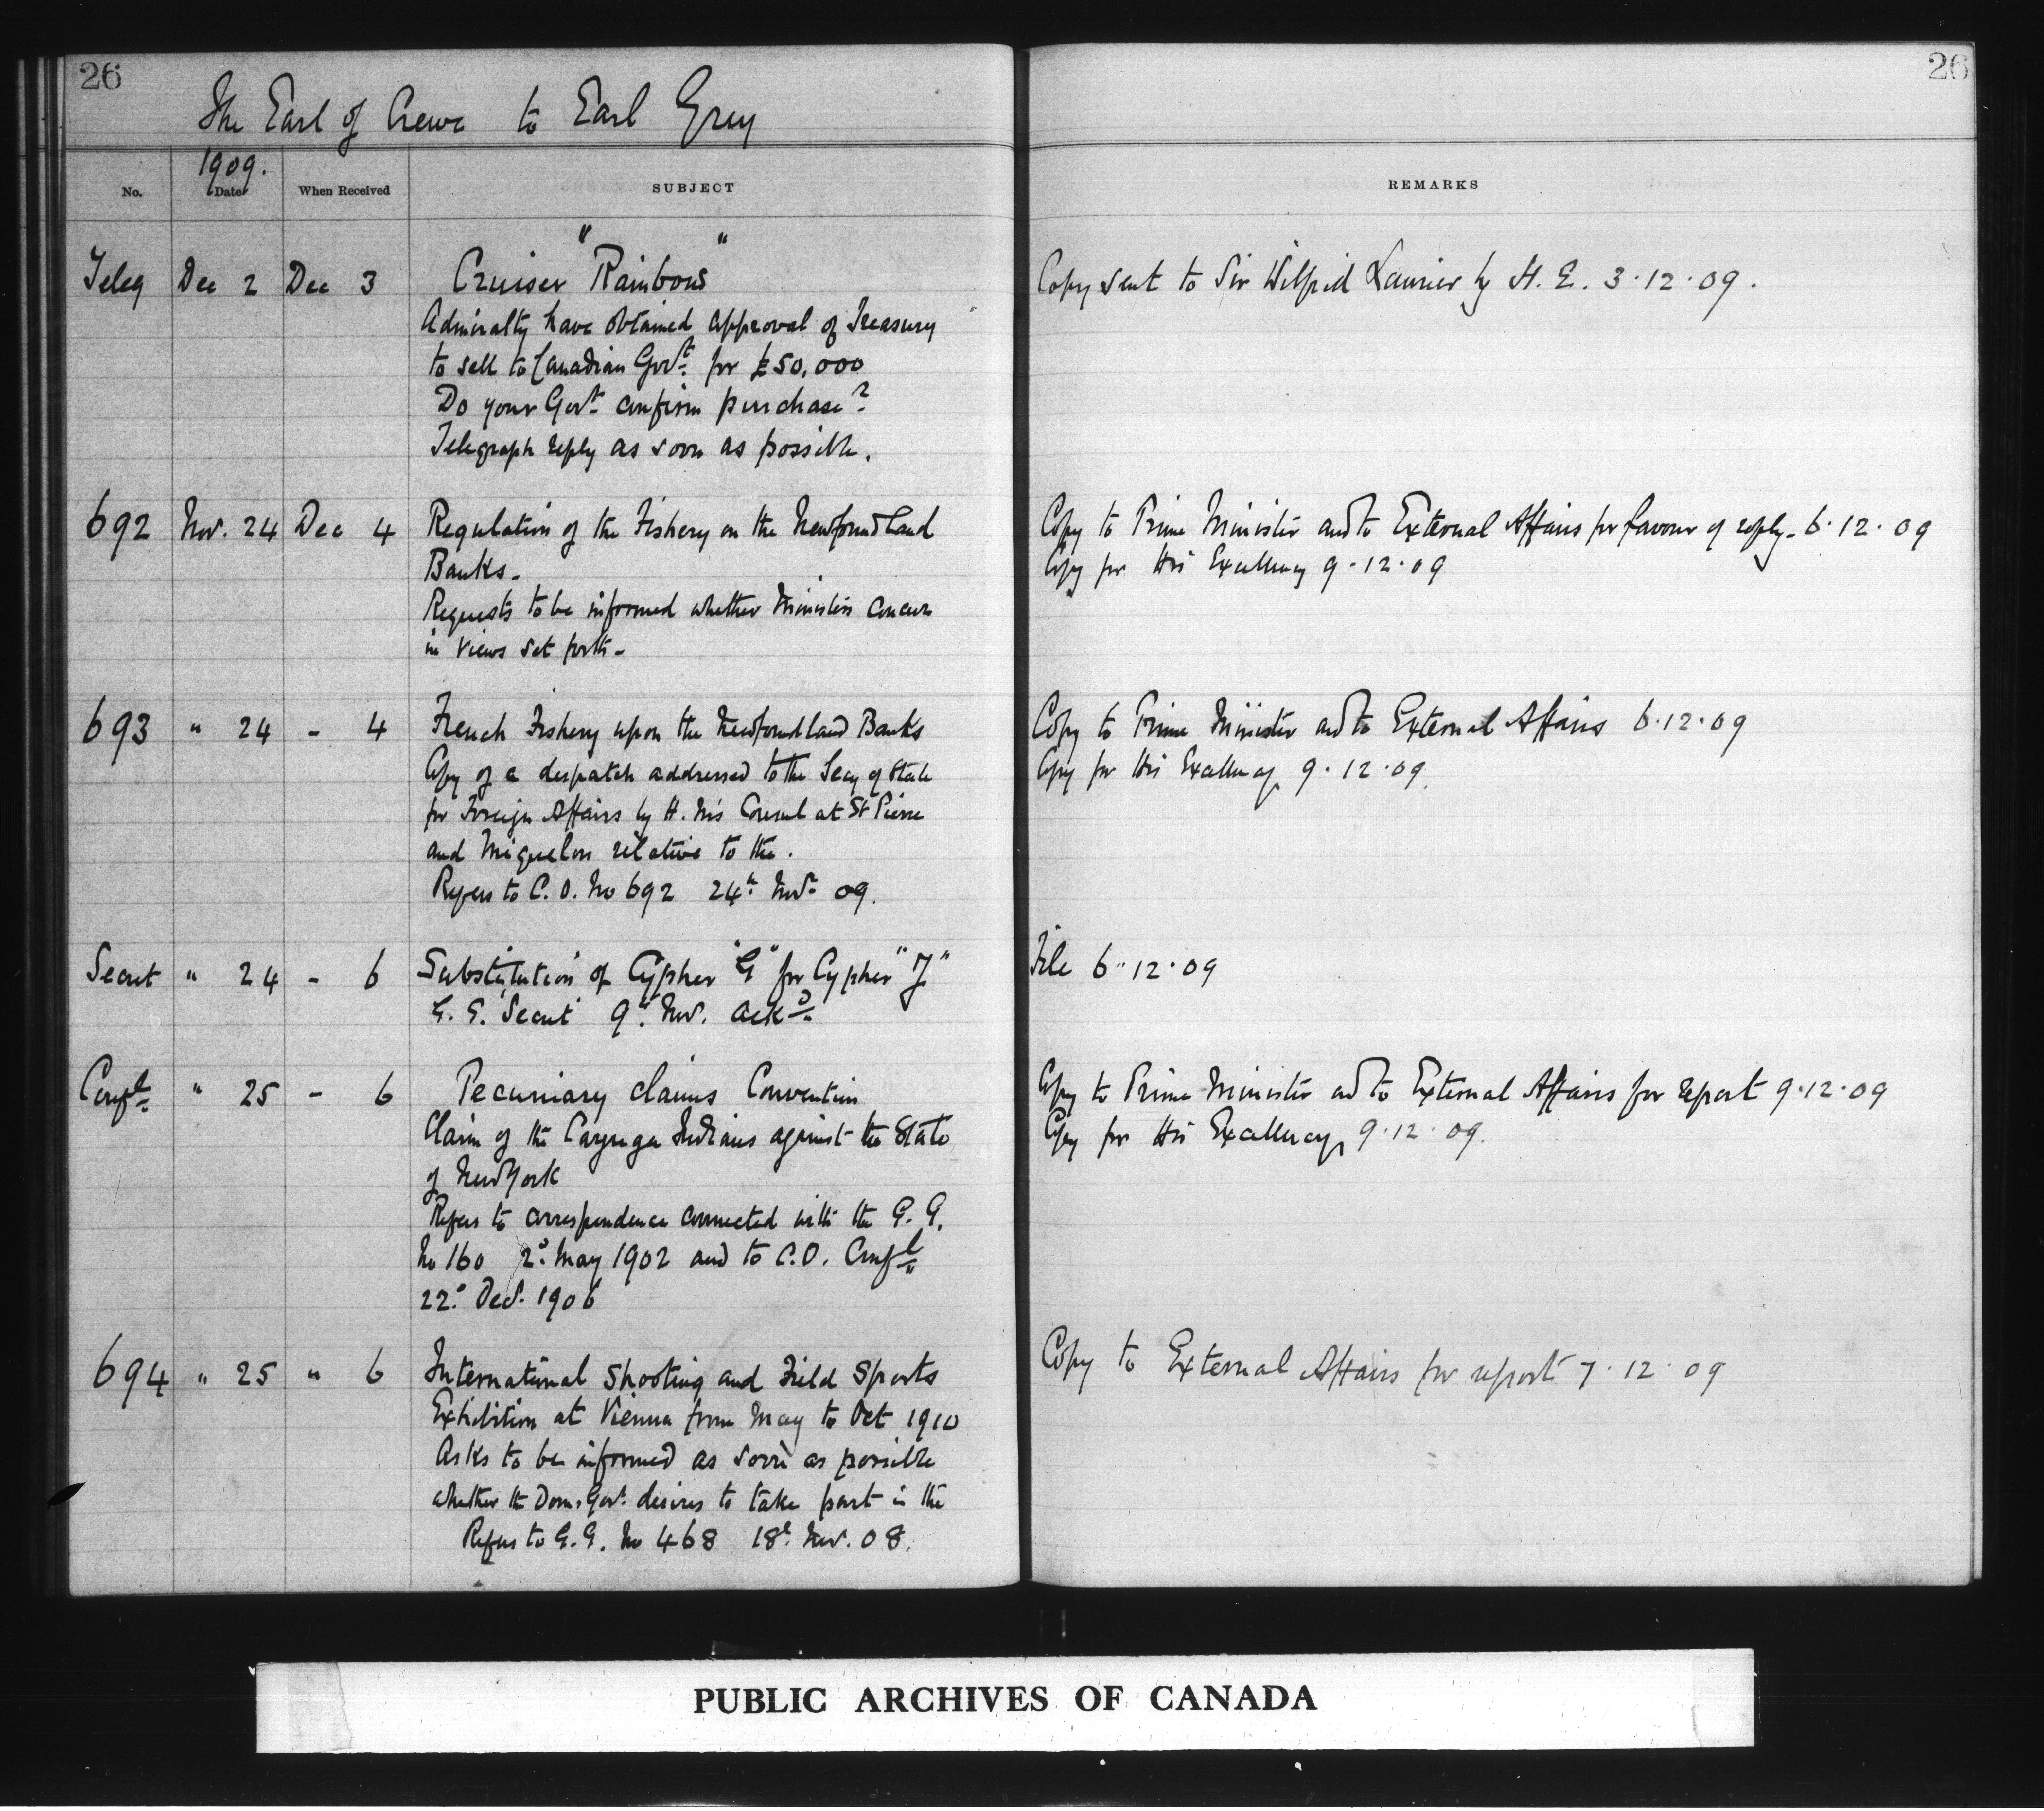 26
26
The Earl of Crewe to Earl Grey
1909.
No. Date When Received SUBJECT REMARKS
Teleg Dec 2 Dec 3 Cruiser "Rainbow" Copy sent to Sir Wilfrid Laurier by H. E. 3.12.09.
Admiralty have obtained approval of Treasury
to sell to Canadian Govt. for £50,000
Do your Govt. confirm purchase?
Telegraph reply as soon as possible.
692 Nov. 24 Dec 4 Regulation of the Fishery on the Newfoundland Copy to Prime Minister and to External Affairs for favour of reply - 6.12.09
Banks - Copy for His Excellency 9.12.09
Requests to be informed whether Ministers concur
in views set forth -
693 " 24 - 4 French Fishery upon the Newfoundland Banks Copy to Prime Minister and to External Affairs 6.12.09
Copy of a despatch addressed to the Secy of State Copy for His Excellency 9.12.09.
for Foreign Affairs by H. M's Consul at St Pierre
and Miquelon relative to the.
Refers to C.O. No 692 24th Novr 09.
Secret " 24 - 6 Substitution of Cypher "G" for Cypher "J" File 6.12.09
G.G. Secret 9th Nov. ackd.
Confl. " 25 - 6 Pecuniary claims Convention Copy to Prime Minister and to External Affairs for report 9.12.09
Claim of the Cayuga Indians against the State Copy for His Excellency 9.12.09.
of New York
Refers to correspondence connected with the G.G.
No 160 2d May 1902 and to C.O. Confl.
22d Dec. 1906
694 " 25 " 6 International Shooting and Field Sports Copy to External Affairs for report 7.12.09
Exhibition at Vienna from May to Oct 1910
Asks to be informed as soon as possible
whether the Dom. Govt. desires to take part in the
Refers to G.G. No 468 18th Nov. 08.
PUBLIC ARCHIVES OF CANADA